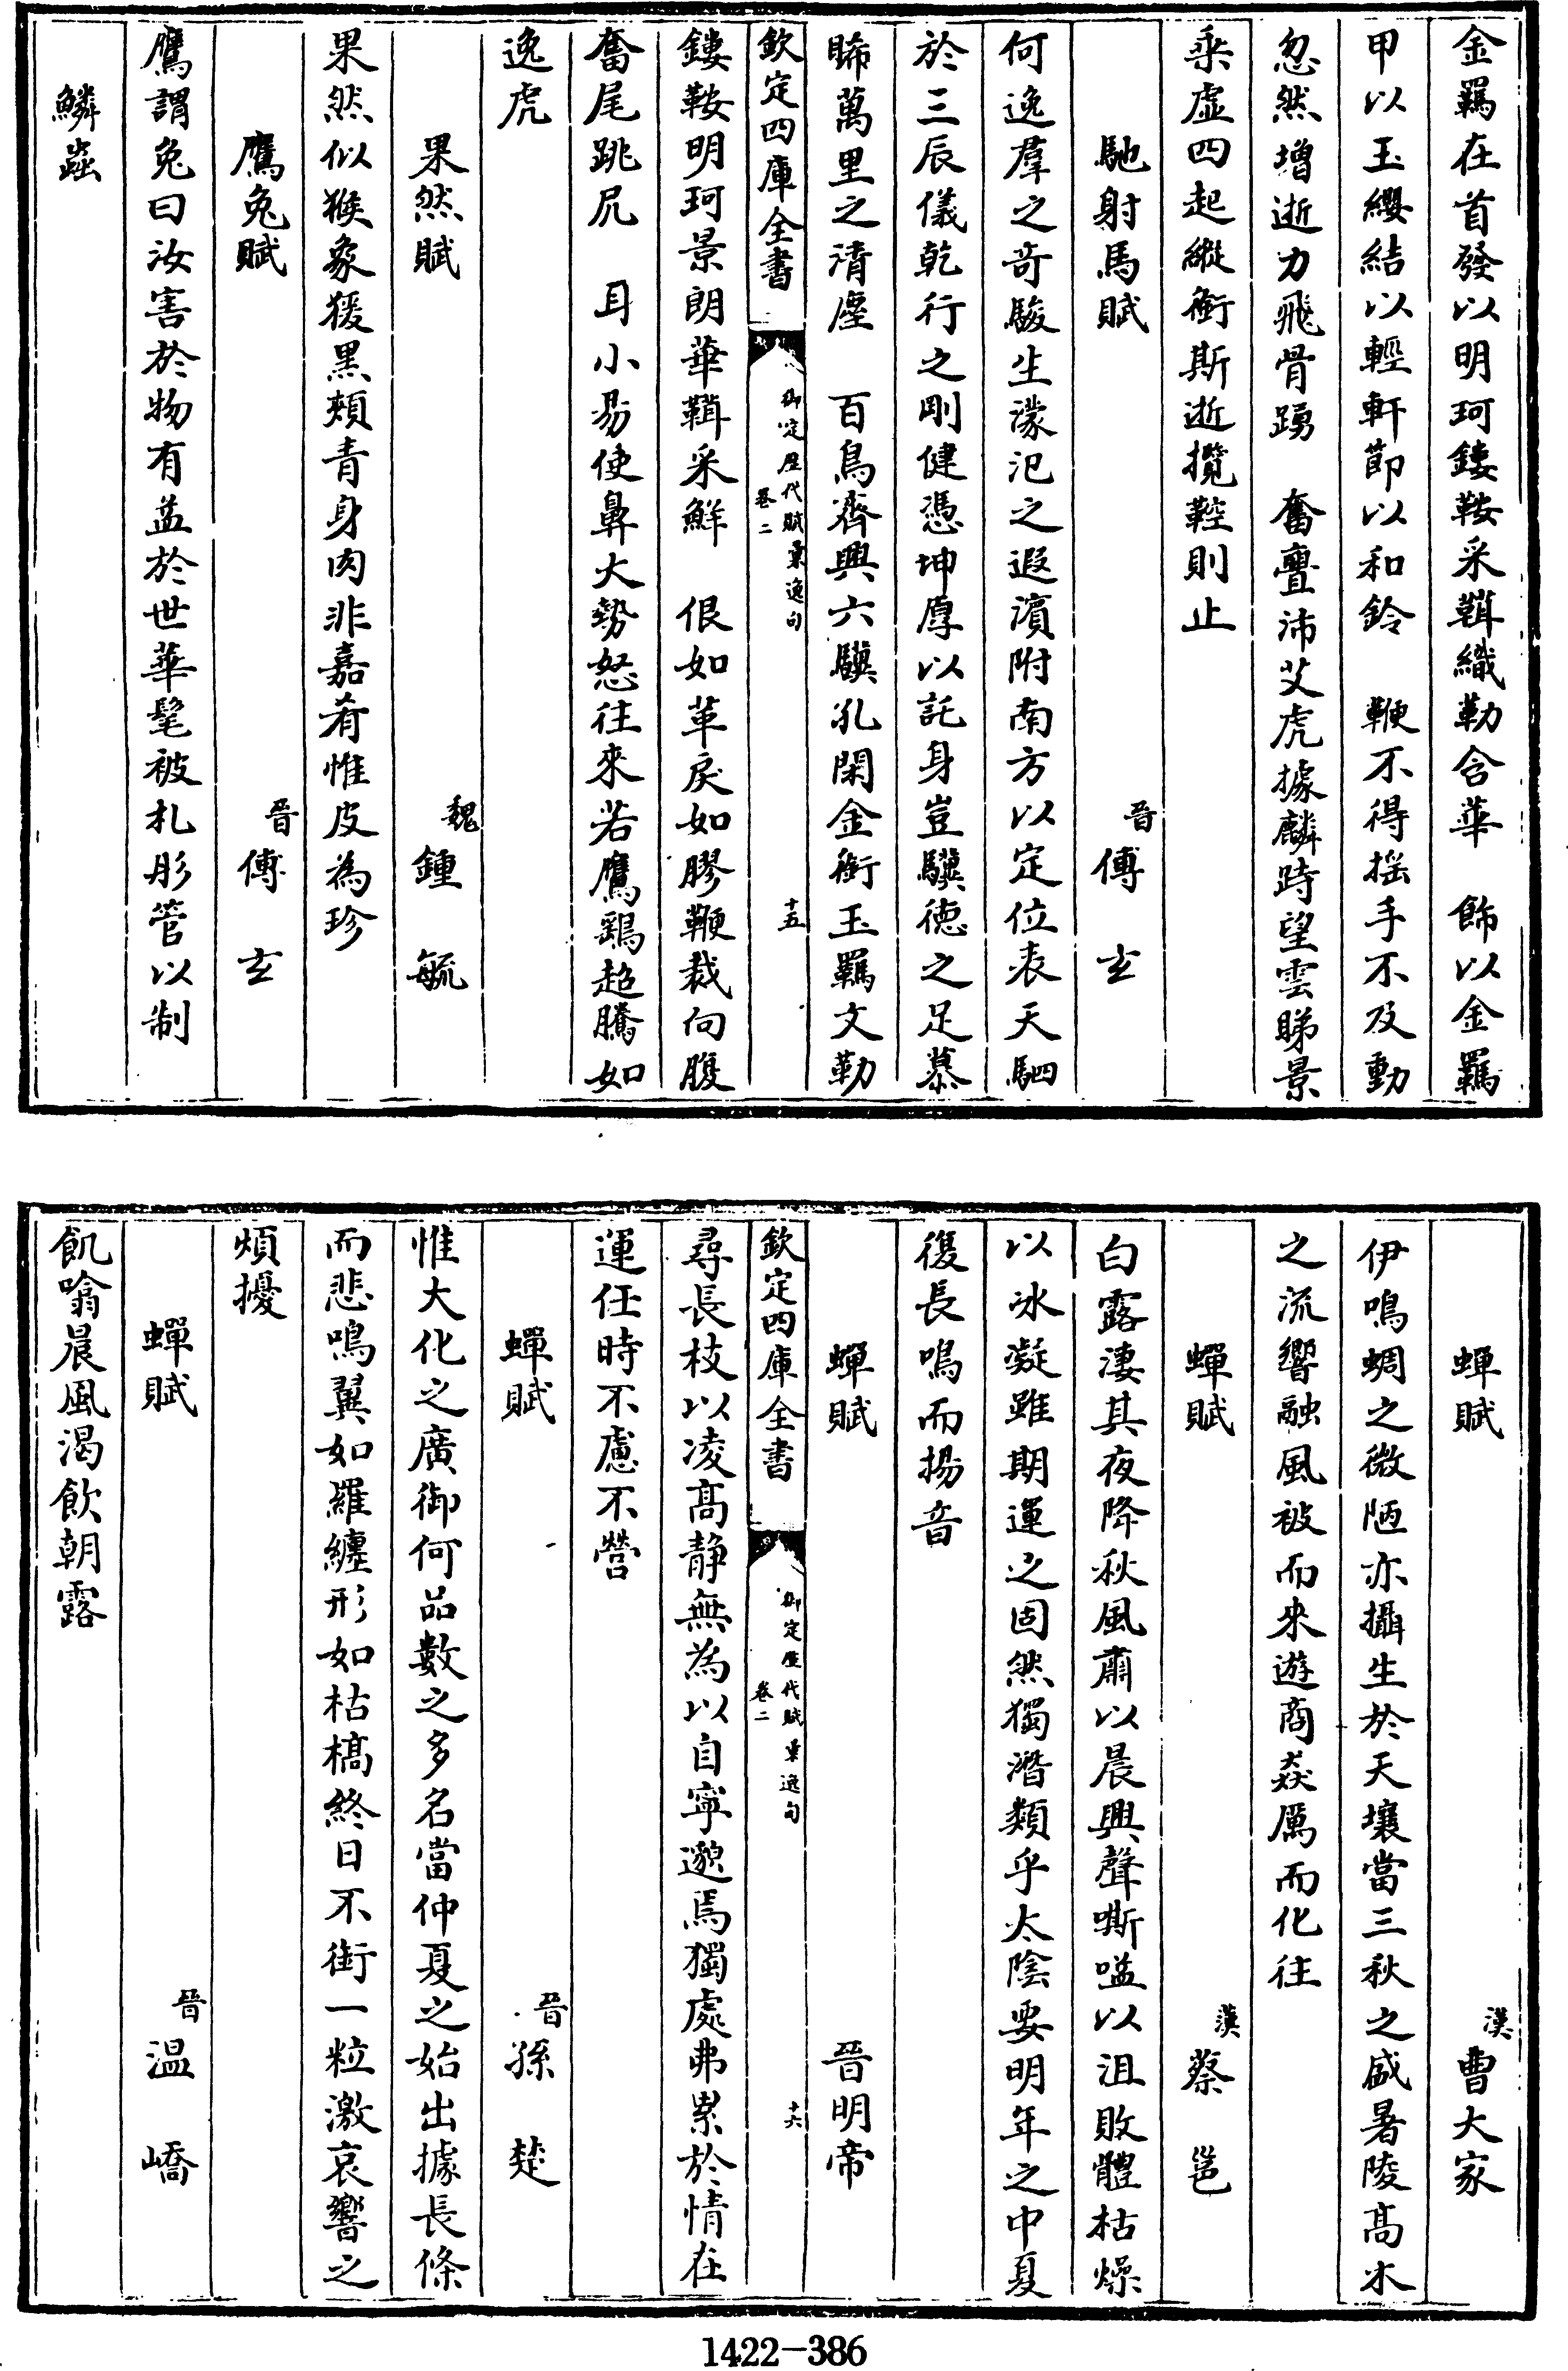 金羈在首發以明珂鏤鞍采鞙織勒含華　飾以金羈
甲以玉纓結以輕軒節以和鈴　鞭不得揺手不及動
忽然增逝力飛骨踴　奮亹沛艾虎據麟跱望雲睇景
乘虛四起縱銜斯逝攬鞚則止
馳射馬賦　晉傅玄
何逸羣之奇駿生濛汜之遐濵附南方以定位表天駟
於三辰儀乾行之剛健憑坤厚以託身豈驥徳之足慕
睎萬里之清塵　百鳥齊興六驥孔閑金銜玉羈文勒
欽定四庫全書　御定歴代賦彚逸句　卷二　十五
鏤鞍明珂景朗華鞙采鮮　佷如革戾如膠鞭裁向腹
奮尾跳尻　耳小易使鼻大勢怒往來若鷹鷂超騰如
逸虎
果然賦　魏鍾毓
果然似猴象猨黑頰青身肉非嘉肴惟皮為珍
鷹兔賦　晉傅玄
鷹謂兔曰汝害於物有益於世華髦被札彤管以制
鱗蟲
蟬賦　漢曹大家
伊鳴蜩之微陋亦攝生於天壤當三秋之盛暑陵髙木
之流響融風被而來遊商焱厲而化往
蟬賦　漢蔡邕
白露淒其夜降秋風肅以晨興聲嘶嗌以沮敗體枯燥
以冰凝雖期運之固然獨潛類乎太陰要明年之中夏
復長鳴而揚音
蟬賦　晉明帝
欽定四庫全書　御定歴代賦彚逸句　卷二　十六
尋長枝以凌髙靜無為以自寧邈焉獨處弗累於情在
運任時不慮不營
蟬賦　晉孫楚
惟大化之廣御何品數之多名當仲夏之始出據長條
而悲鳴翼如羅纏形如枯槁終日不銜一粒激哀響之
煩擾
蟬賦　晉温嶠
飢噏晨風渴飲朝露
1422-386